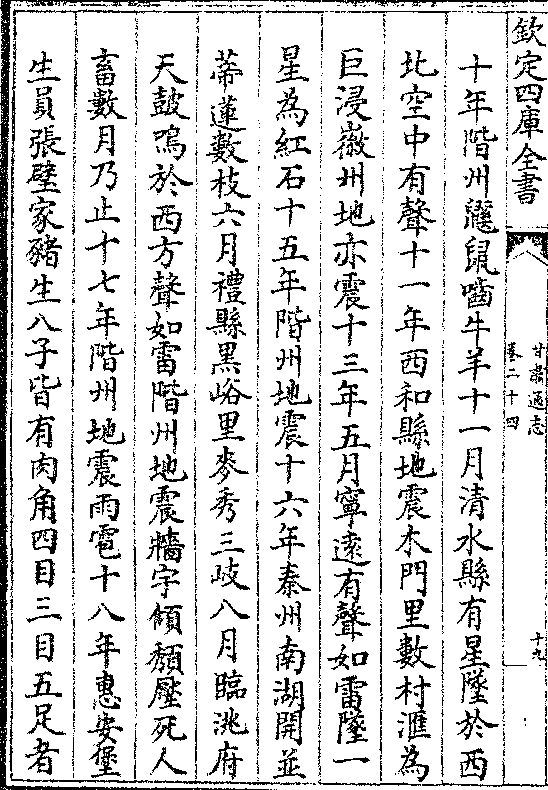 欽定四庫全書
甘肅通志
卷二十四
十九
十年階州鼴鼠嚙牛羊十一月清水縣有星墜於西
北空中有聲十一年西和縣地震木門里數村滙為
巨浸徽州地亦震十三年五月寧遠有聲如雷墜一
星為紅石十五年階州地震十六年秦州南湖開並
蒂蓮數枝六月禮縣黒峪里麥秀三岐八月臨洮府
天鼓鳴於西方聲如雷階州地震牆宇傾頽壓死人
畜數月乃止十七年階州地震雨雹十八年惠安堡
生員張璧家豬生八子皆有肉角四目三目五足者